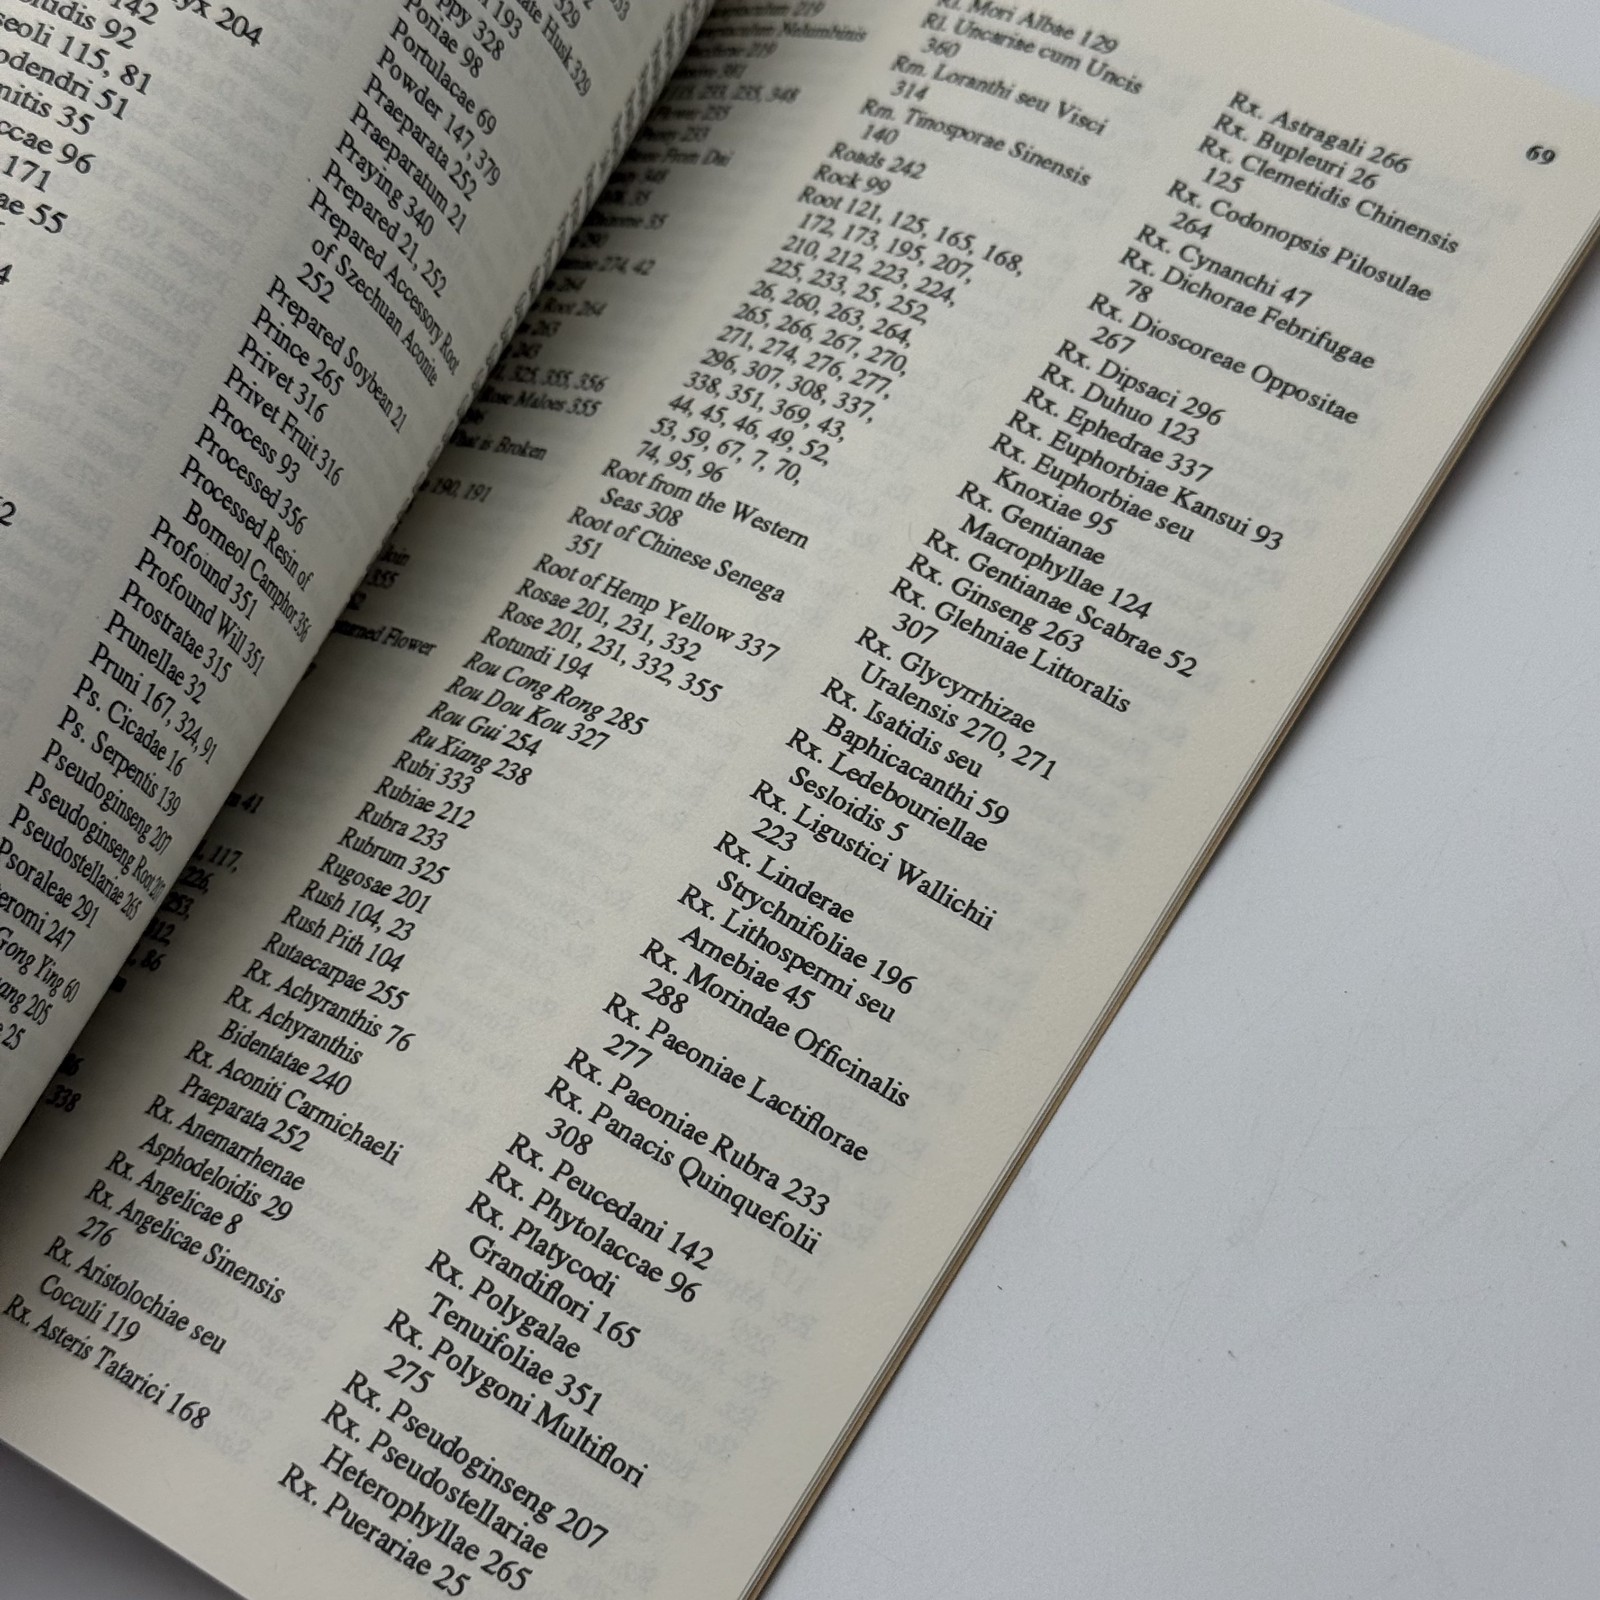 yx 204
142
92
seoli 115, 81
odendri 51
nitis 35
ccae 96
171
ae 55
329
193
ate Husk 329
ppy 328
Poriae 98
Portulacae 69
Powder 147, 379
Praeparata 252
Praeparatum 21
Praying 340
Prepared 21, 252
Prepared Accessory Root
of Szechuan Aconite
252
Prepared Soybean 21
Prince 265
Privet 316
Privet Fruit 316
Process 93
Processed 356
Processed Resin of
Borneol Camphor 356
Profound 351
Profound Will 351
Prostratae 315
Prunellae 32
Pruni 167, 324, 91
Ps. Cicadae 16
Ps. Serpentis 139
Pseudoginseng 207
Pseudoginseng Root 207
Pseudostellariae 265
Psoraleae 291
eromi 247
Gong Ying 60
ang 205
25
69
219
Nelumbinis
219
381
233, 235, 348
Flower 235
Peony 233
From Dai
348
35
35
290
274, 42
264
Root 264
263
243
325, 355, 356
Rose Maloes 355
That is Broken
190, 191
355
Flower
41
117,
226,
253,
86
338
Rl. Mori Albae 129
Rl. Uncariae cum Uncis
360
Rm. Loranthi seu Visci
314
Rm. Tinosporae Sinensis
140
Roads 242
Rock 99
Root 121, 125, 165, 168,
172, 173, 195, 207,
210, 212, 223, 224,
225, 233, 25, 252,
26, 260, 263, 264,
265, 266, 267, 270,
271, 274, 276, 277,
296, 307, 308, 337,
338, 351, 369, 43,
44, 45, 46, 49, 52,
53, 59, 67, 7, 70,
74, 95, 96
Root from the Western
Seas 308
Root of Chinese Senega
351
Root of Hemp Yellow 337
Rosae 201, 231, 332
Rose 201, 231, 332, 355
Rotundi 194
Rou Cong Rong 285
Rou Dou Kou 327
Rou Gui 254
Ru Xiang 238
Rubi 333
Rubiae 212
Rubra 233
Rubrum 325
Rugosae 201
Rush 104, 23
Rush Pith 104
Rutaecarpae 255
Rx. Achyranthis 76
Rx. Achyranthis
Bidentatae 240
Rx. Aconiti Carmichaeli
Praeparata 252
Rx. Anemarrhenae
Asphodeloidis 29
Rx. Angelicae 8
Rx. Angelicae Sinensis
276
Rx. Aristolochiae seu
Cocculi 119
Rx. Asteris Tatarici 168
Rx. Astragali 266
Rx. Bupleuri 26
Rx. Clemetidis Chinensis
125
Rx. Codonopsis Pilosulae
264
Rx. Cynanchi 47
Rx. Dichorae Febrifugae
78
Rx. Dioscoreae Oppositae
267
Rx. Dipsaci 296
Rx. Duhuo 123
Rx. Ephedrae 337
Rx. Euphorbiae Kansui 93
Rx. Euphorbiae seu
Knoxiae 95
Rx. Gentianae
Macrophyllae 124
Rx. Gentianae Scabrae 52
Rx. Ginseng 263
Rx. Glehniae Littoralis
307
Rx. Glycyrrhizae
Uralensis 270, 271
Rx. Isatidis seu
Baphicacanthi 59
Rx. Ledebouriellae
Sesloidis 5
Rx. Ligustici Wallichii
223
Rx. Linderae
Strychnifoliae 196
Rx. Lithospermi seu
Arnebiae 45
Rx. Morindae Officinalis
288
Rx. Paeoniae Lactiflorae
277
Rx. Paeoniae Rubra 233
Rx. Panacis Quinquefolii
308
Rx. Peucedani 142
Rx. Phytolaccae 96
Rx. Platycodi
Grandiflori 165
Rx. Polygalae
Tenuifoliae 351
Rx. Polygoni Multiflori
275
Rx. Pseudoginseng 207
Rx. Pseudostellariae
Heterophyllae 265
Rx. Puerariae 25